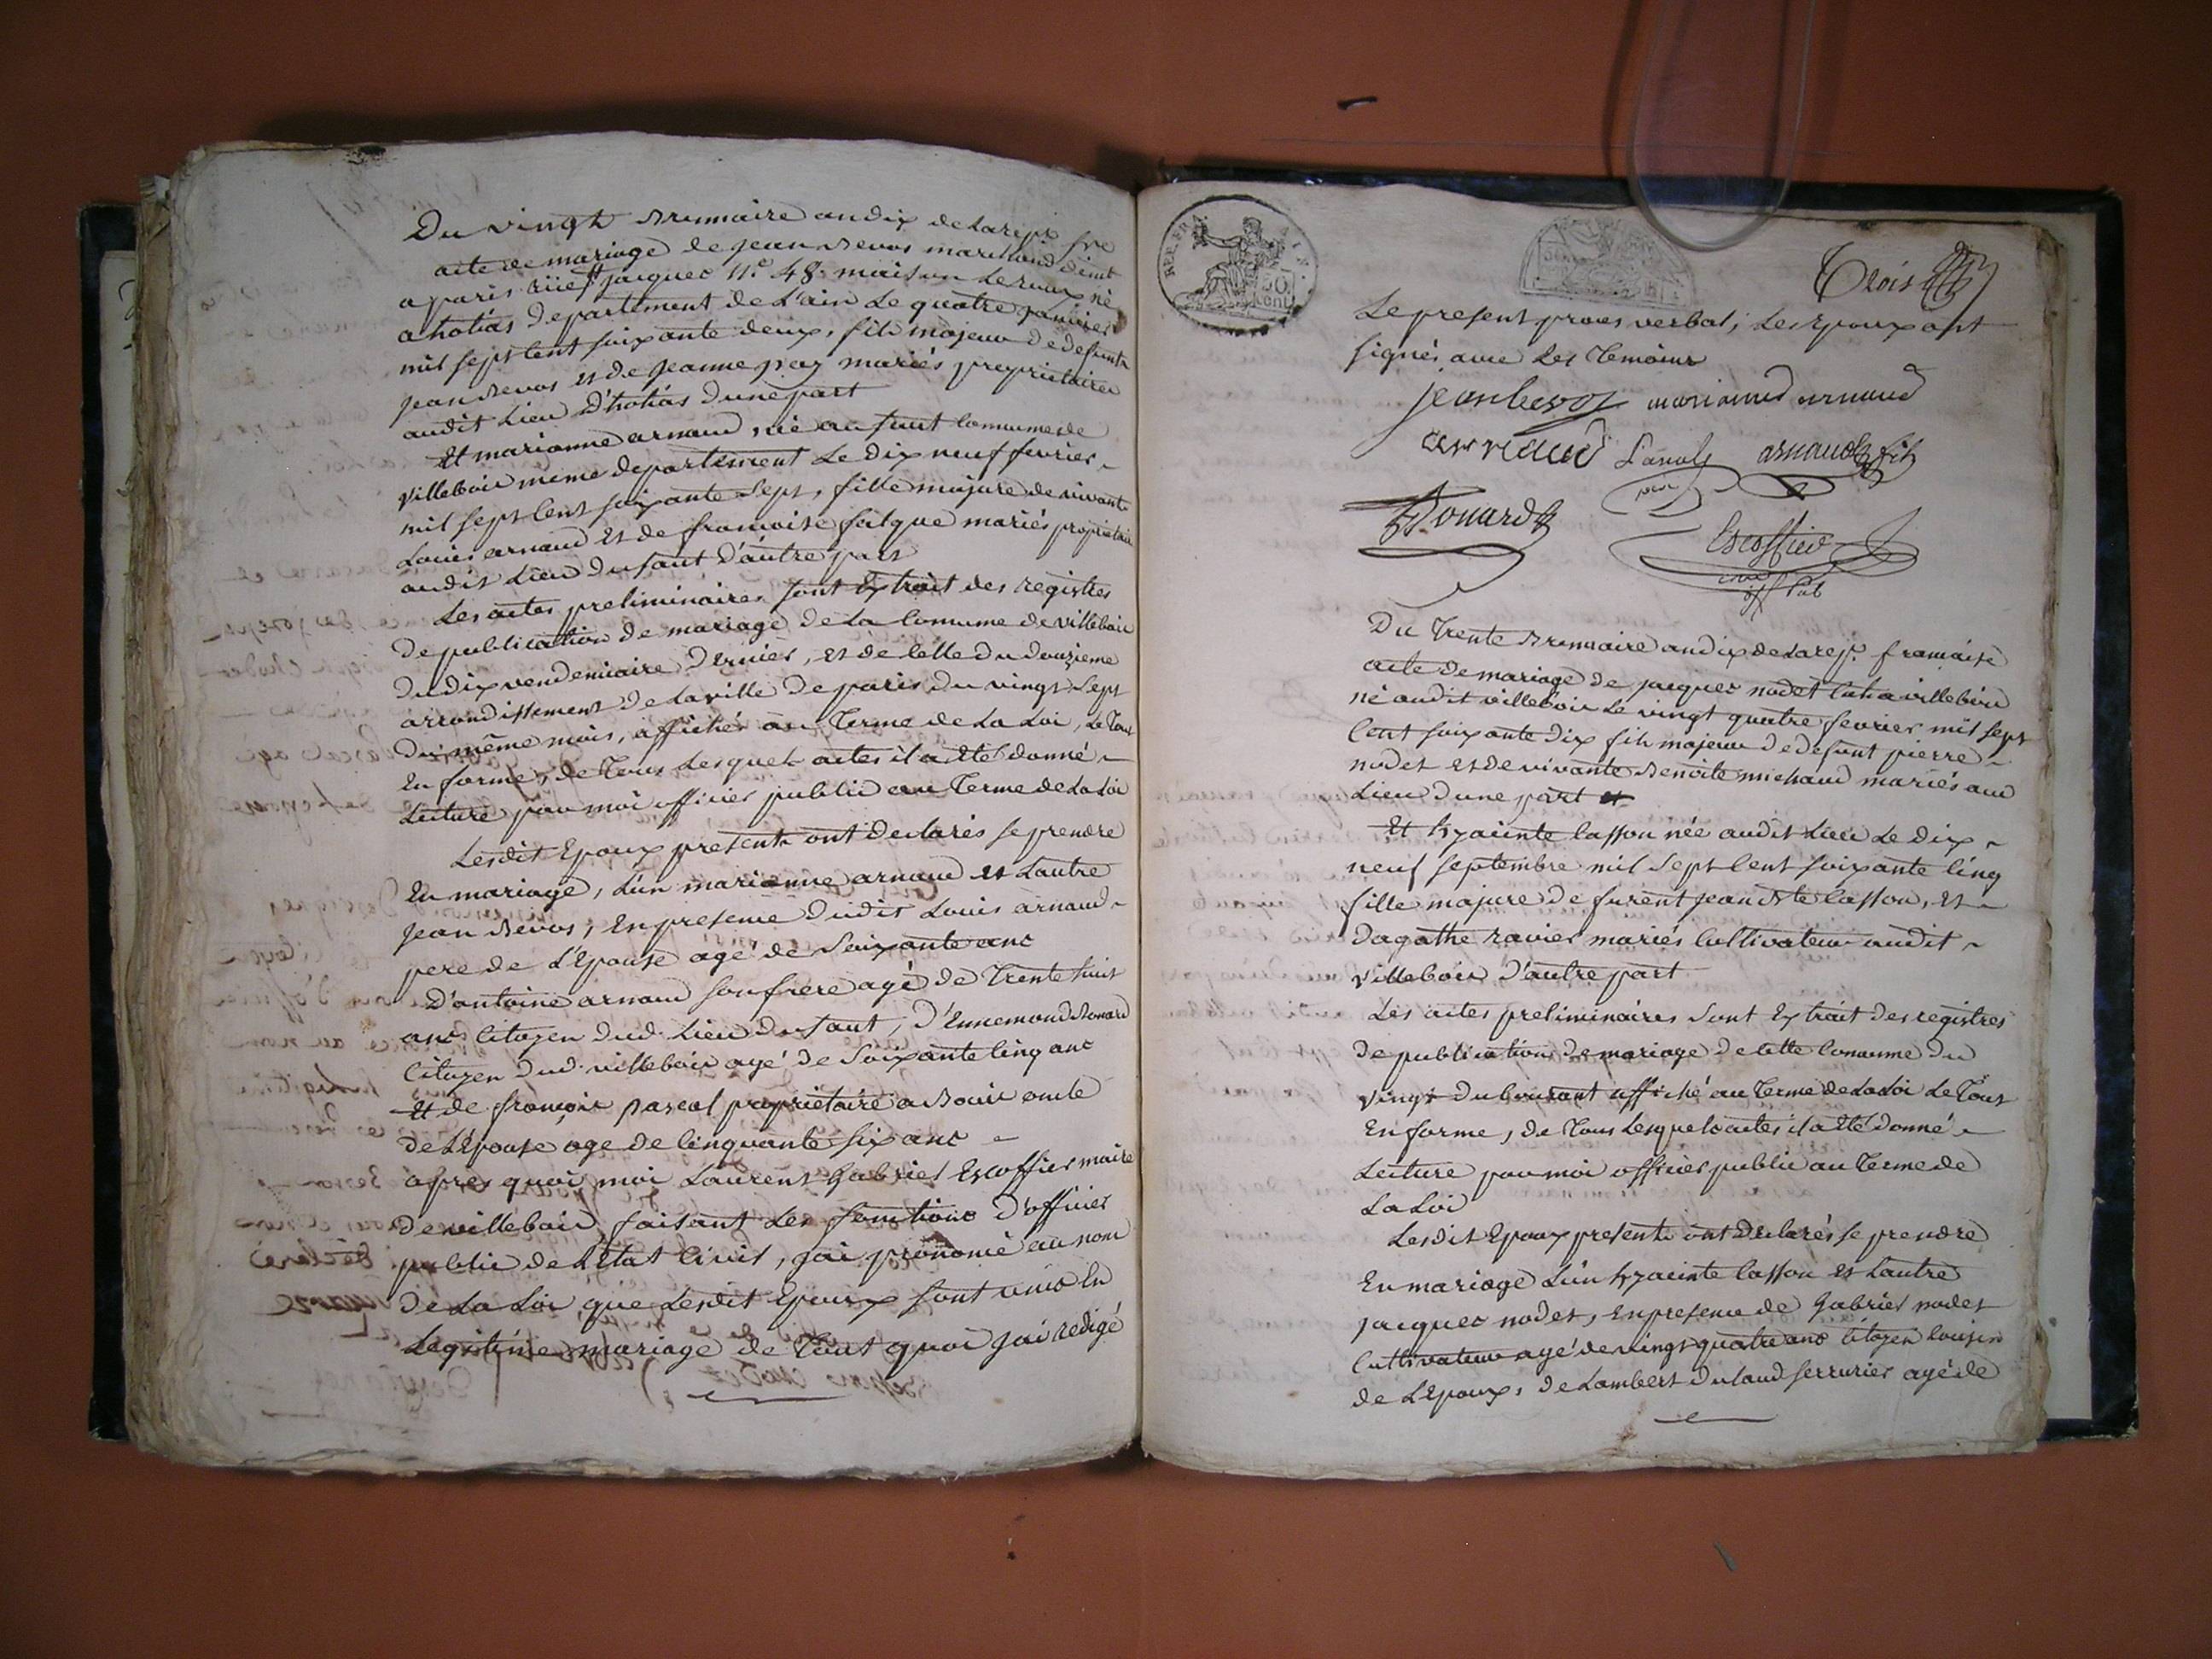 Du vingt Brumaire an dix de la rep. fre
acte de mariage de jean Bevos marchand dimt
a paris rüe St jacques N.o 48 maison Leroux né
a hotias departement de L'ain Le quatre janvier
mil sept cent soixante deux, fils majeur de defunt
jean Bevos et de jeanne pay mariés propriétaires
audit Lieu d'hotias dune part
Et marianne arnaud, né au saut commune de
villebois meme departement Le dix neuf fevrier
mil sept cent soixante sept, fille majure de vivant
Louis arnaud et de francoise falque mariés proprietaire
audit Lieu du saut d'autre part
Les actes preliminaires sont Extrait des registres
de publication de mariage de la commune de villebois
du dix vendemiaire dernier, et de celle du douzieme
arrondissement de la ville de paris du vingt sept
du même mois, affichés au terme de La Loi, Le tout
En forme, de tous Lesquels actes il a eté donné
Lecture par moi officier public au terme de La Loi
Lesdit Epoux presents ont declarés se prendre
En mariage, L'un marianne arnaud et Lautre
jean Bevos, En presence dudit Louis arnaud
pere de L'Epouse agé de soixante ans
D'antoine arnaud son frere agé de trente huit
ans citoyen dud. Lieu du saut, d'Ennemond Bonard
citoyen dud. villebois agé de soixante cinq ans
Et de françois pascal propriétaire a Bouis oncle
de L'Epouse age de cinquante six ans
apres quoi moi Laurent Gabriel Escoffier maire
de villebois, faisant Les fonctions d'officier
public de L'Etat Civil, jai prononcé au nom
de La Loi que Lesdit Epoux sont unis En
Legitime mariage de tout quoi jai redigé
REP. FRA.
50 cent
Trois
Le present proces verbal, Les Epoux ont
signés avec Les temoins
jean bevoz marianne arnaud
arnaud Pascal arnaud fils
Bonard
Escoffier
off Pub
Du trente Brumaire an dix de La rep. francaise
acte de mariage de jacques nodet cult. a villebois
né audit villebois Le vingt quatre fevrier mil sept
cent soixante dix fils majeur de defunt pierre
nodet et de vivante Benoite michaud mariés aud
Lieu dune part
Et hyacinte casson née audit Lieu Le dix
neuf septembre mil sept cent soixante cinq
fille majure de furent jean Bte casson, et
dagathe ravier mariés Cultivateur audit
villebois d'autre part
Les actes preliminaires sont Extrait des registres
de publications de mariage de cette commune du
vingt du courant affiché au terme de La Loi Le tout
En forme, de tous Lesquels actes il a eté donné
Lecture par moi officier public au terme de
La Loi
Lesdit Epoux presents ont declarés se prendre
En mariage L'un hyacinte casson et Lautre
jacques nodet, en presence de Gabriel nodet
Cultivateur agé de vingt quatre ans citoyen cousin
de L'Epoux, de Lambert Dulaud serrurier agé de